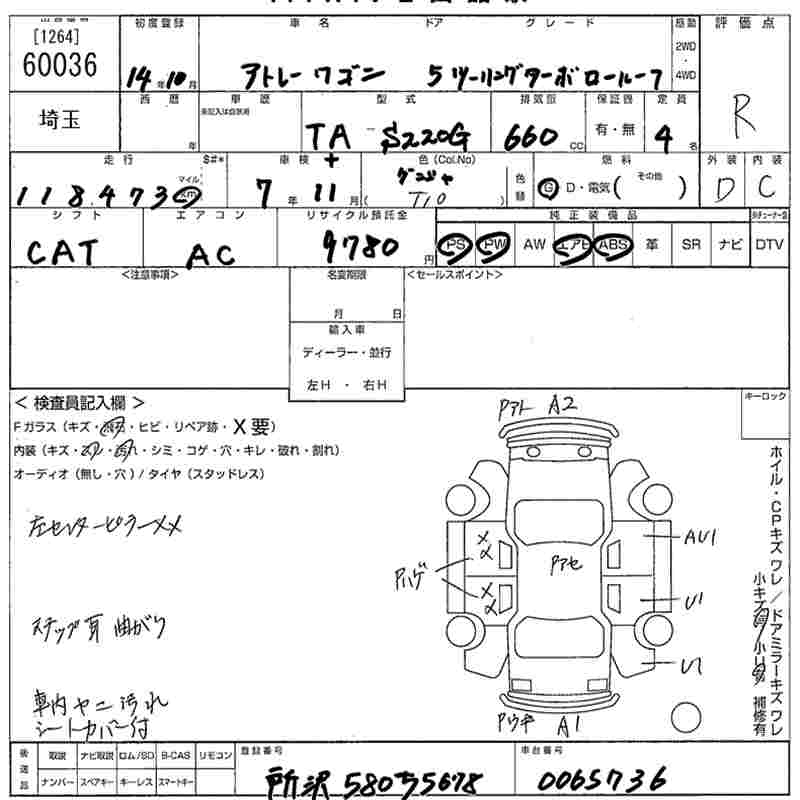 [1264]
60036
初度登録 車名 ドア グレード 駆動 評価点
14年10月 アトレーワゴン 5 ツーリングターボロールーフ 2WD・4WD
R
埼玉
西暦 車歴 型式 排気量 保証書 定員
年 未記入は自家用 TA-S220G 660cc 有・無 4名
走行 S#* 車検 色(Col.No) 色替 燃料 外装 内装
118,473 マイル km 7年11月 ( T10 ) G D・電気( その他 ) D C
シフト エアコン リサイクル預託金 純正装備品
CAT AC 9780円 PS PW AW エアB ABS 革 SR ナビ DTV
<注意事項> 名変期限 <セールスポイント>
月 日
輸入車
ディーラー・並行
左H ・ 右H
< 検査員記入欄 >
Fガラス(キズ・ ・ヒビ・リペア跡・X要)
内装(キズ・ ・ ・シミ・コゲ・穴・キレ・破れ・割れ)
オーディオ(無し・穴)/タイヤ(スタッドレス)
キーロック
Pアト A2
左センターピラーXX
XX
Pハゲ
XX
Pアセ
AU1
U1
U1
ステップ耳 曲がり
車内ヤニ汚れ
シートカバー付
Pウキ A1
ホイル・CPキズワレ/ドアミラーキズワレ
小キズ 小 補修有
後送品 取説 ナビ取説 ロム/SD B-CAS リモコン 登録番号 車台番号
ナンバー スペアキー キーレス スマートキー 所沢 580ち5678 0065736